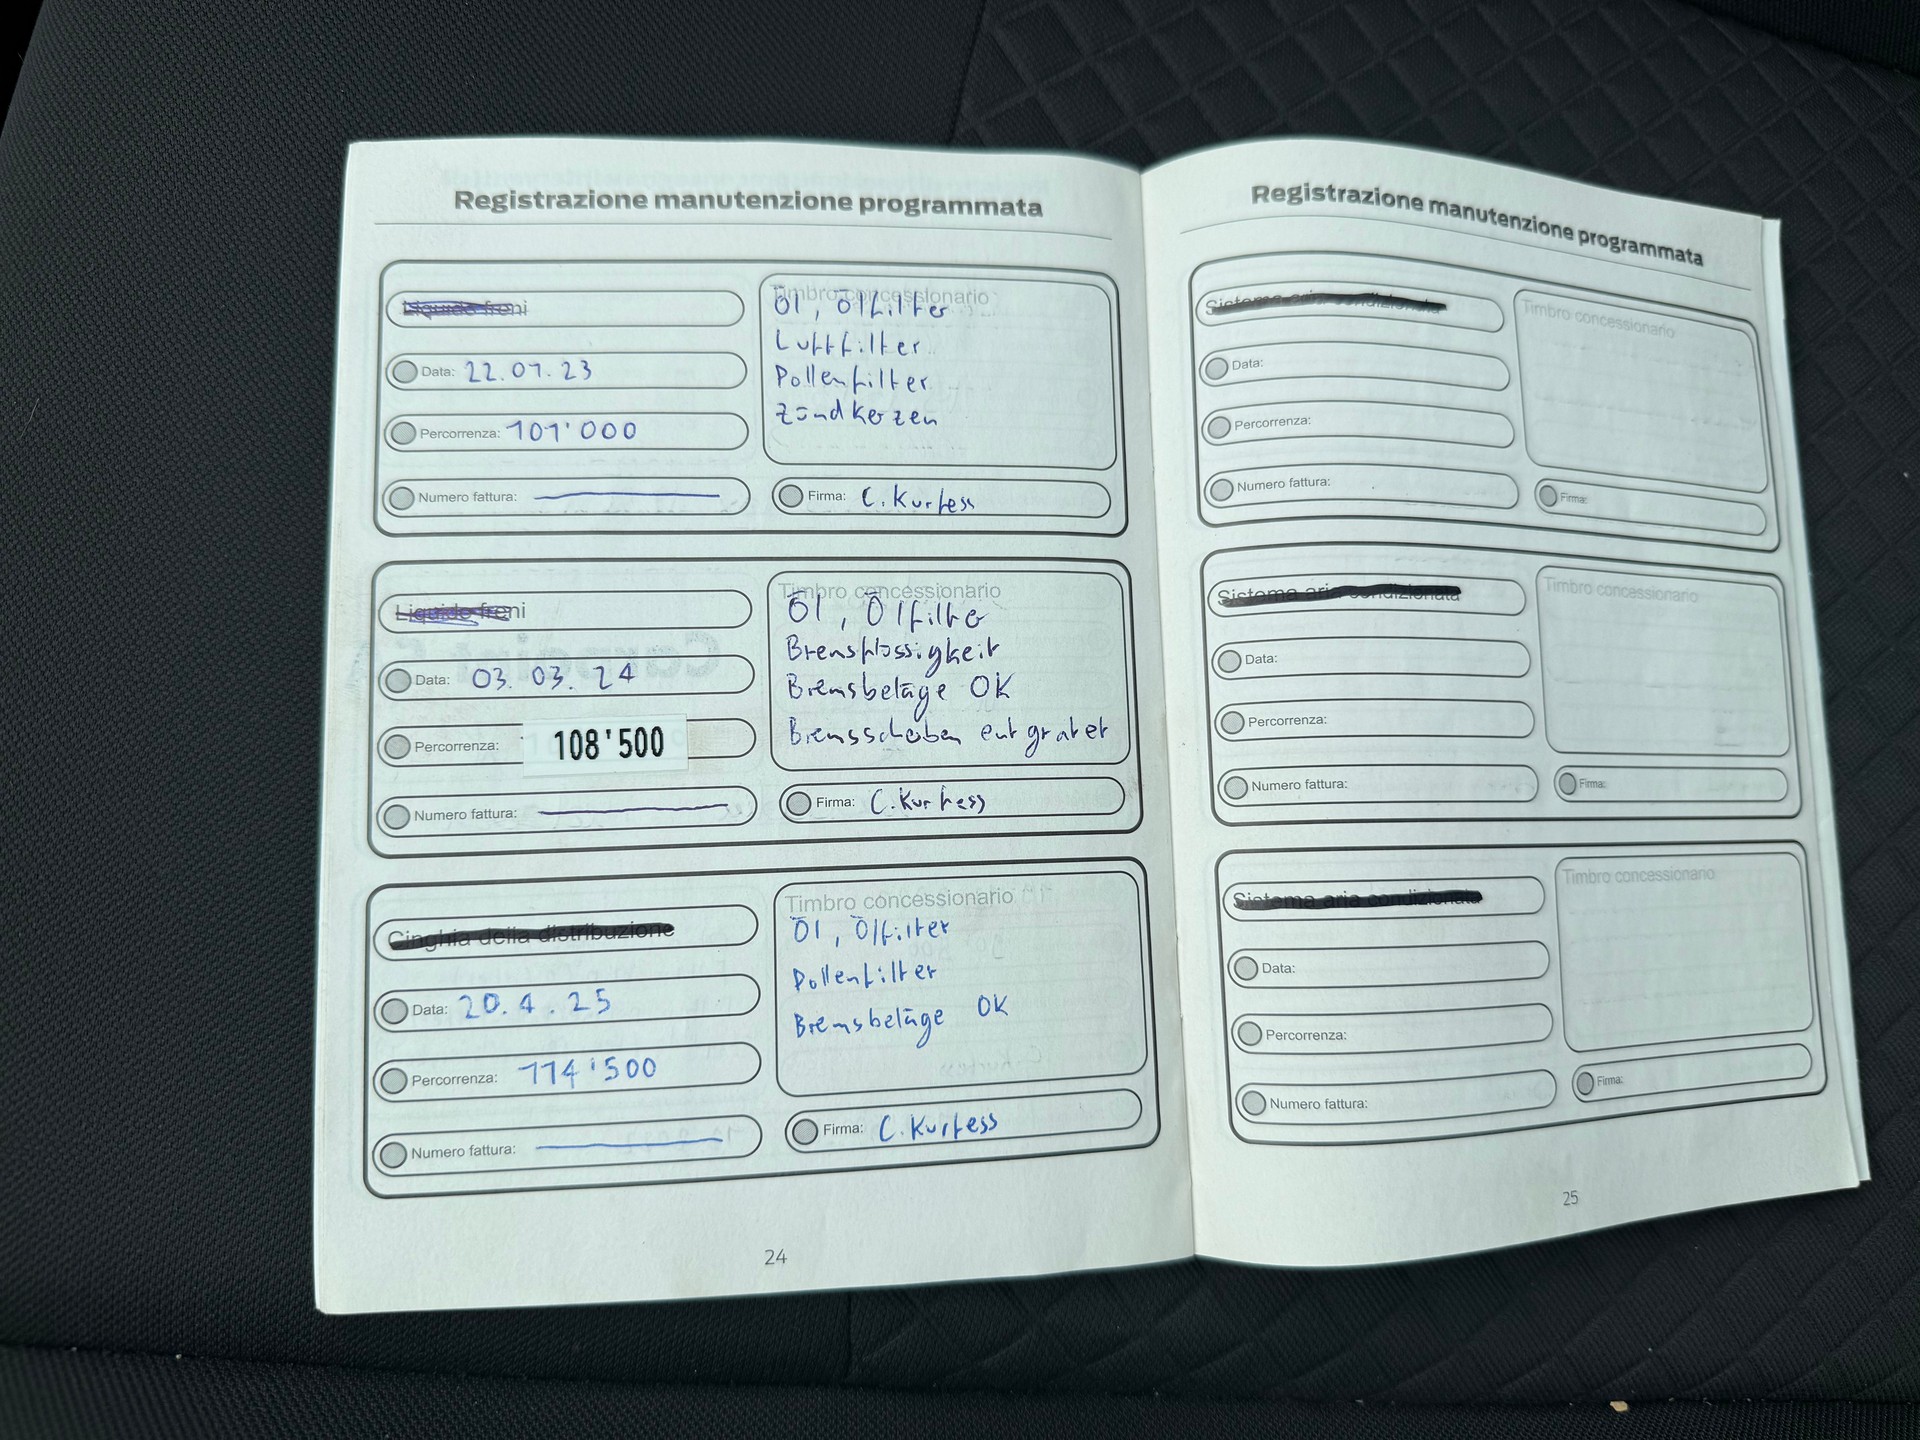 Registrazione manutenzione programmata
Liquido freni
Data: 22.07.23
Percorrenza: 101'000
Numero fattura:
Timbro concessionario
Öl, Ölfilter
Luftfilter
Pollenfilter
Zündkerzen
Firma: C. Kurfess
Liquido freni
Data: 03.03.24
Percorrenza: 108'500
Numero fattura:
Timbro concessionario
Öl, Ölfilter
Bremsflüssigkeit
Bremsbeläge OK
Bremsscheiben entgratet
Firma: C. Kurfess
Cinghia della distribuzione
Data: 20.4.25
Percorrenza: 114'500
Numero fattura:
Timbro concessionario
Öl, Ölfilter
Pollenfilter
Bremsbeläge OK
Firma: C. Kurfess
24
Registrazione manutenzione programmata
Sistema aria condizionata
Data:
Percorrenza:
Numero fattura:
Timbro concessionario
Firma:
Sistema aria condizionata
Data:
Percorrenza:
Numero fattura:
Timbro concessionario
Firma:
Sistema aria condizionata
Data:
Percorrenza:
Numero fattura:
Timbro concessionario
Firma:
25